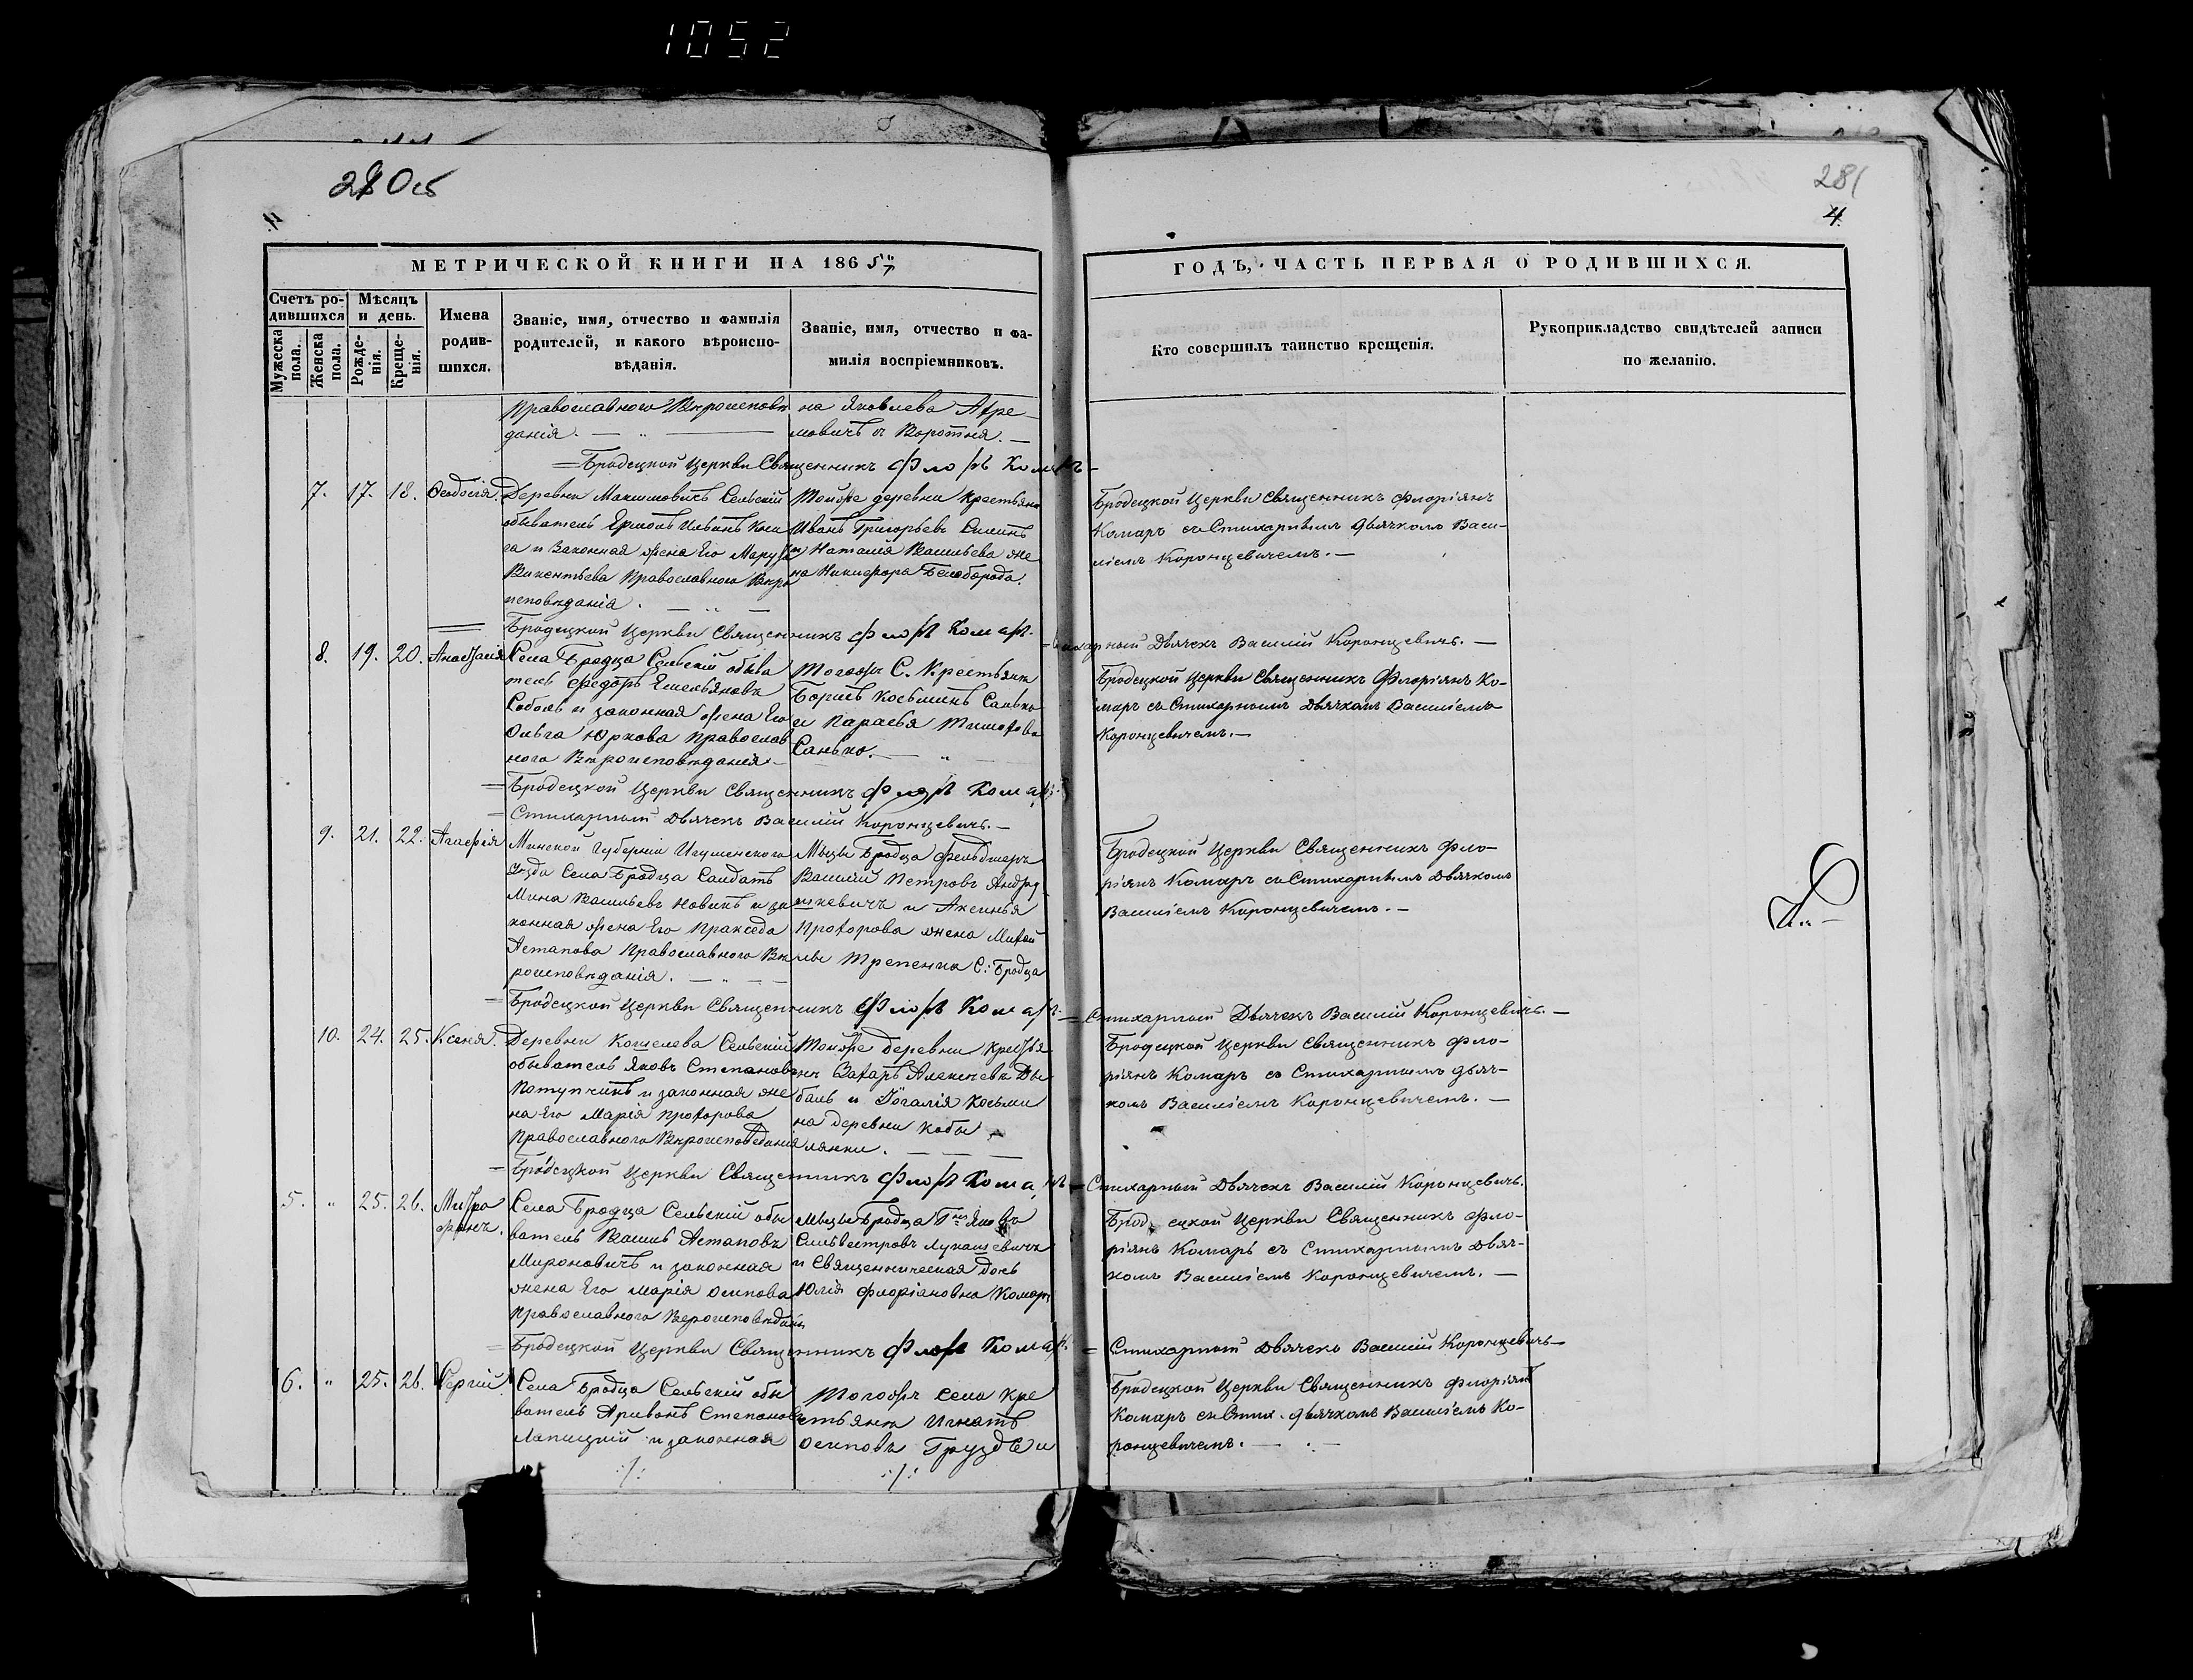 1052
280 об
281
4
4.
МЕТРИЧЕСКОЙ КНИГИ НА 1865
ГОДЪ, ЧАСТЬ ПЕРВАЯ О РОДИВШИХСЯ.
Счетъ ро-
дившихся
Мужеска пола.
Женска пола.
Мѣсяцъ
и день.
Рожде-
нія.
Креще-
нія.
Имена
родив-
шихся.
Званіе, имя, отчество и фамилія
родителей, и какого вѣроиспо-
вѣданія.
Званіе, имя, отчество и фа-
милія воспріемниковъ.
Кто совершилъ таинство крещенія.
Рукоприкладство свидѣтелей записи
по желанію.
Православнаго Вѣроисповѣ
данія.
на Яковлева
Бродецкой Церкви Священникъ Флоръ Комаръ
7. 17. 18. Ѳеодосія.
Деревни Максимовичъ Сельскій
обыватель Ермолъ Ильинъ
и Законная жена Его
Викентьева Православнаго Вѣро
исповѣданія.
Тойже деревни Крестьяне
Иванъ Григорьевъ
и Наталія Васильева же
на Никифора Белоборода.
Бродецкой Церкви Священникъ Флоріянъ
Комаръ съ Стихарнымъ дьячкомъ Васи-
ліемъ Коронцевичемъ.
Бродецкой Церкви Священникъ Флоръ Комаръ.
Стихарный Дьячекъ Василій Коронцевичъ.
8. 19. 20. Анастасія
Села Бродца Сельскій обыва
тель Федоръ Емельяновъ
Соболь и законная жена Его
Ольга Юркова Православ
наго Вѣроисповѣданія
Тогожъ С. Крестьяне
Борисъ Косьминъ Санько
и Параскева Тимофева
Санько.
Бродецкой Церкви Священникъ Флоріянъ Ко-
маръ съ Стихарнымъ Дьячкомъ Василіемъ
Коронцевичемъ.
Бродецкой Церкви Священникъ Флоръ Комаръ
Стихарный Дьячекъ Василій Коронцевичъ.
9. 21. 22. Агафія
Минской Губерніи Игуменского
Уѣзда Села Бродца Салдатъ
Мина Васильевъ Новикъ и за
конная жена Его Пракседа
Астапова Православнаго Вѣ
роисповѣданія.
Мызы Бродца Фельдшеръ
Василій Петровъ Андру
шкевичъ и Аксинья
Прохорова жена
С. Бродца
Бродецкой Церкви Священникъ Фло-
ріянъ Комаръ съ Стихарнымъ Дьячкомъ
Василіемъ Коронцевичемъ.
Бродецкой Церкви Священникъ Флоръ Комаръ.
Стихарный Дьячекъ Василій Коронцевичъ.
10. 24. 25. Ксенія.
Деревни Кошелева Сельскій
обыватель Яковъ Степановъ
Потупчикъ и законная же
на Его Марія Прохорова
Православнаго Вѣроисповѣданія
Тойже деревни Крестья
не Захаръ Алексеевъ
и Косьми
на деревни Кобы
лянки.
Бродецкой Церкви Священникъ Фло-
ріянъ Комаръ съ Стихарнымъ дьяч-
комъ Василіемъ Коронцевичемъ.
Бродецкой Церкви Священникъ Флоръ Комаръ
Стихарный Дьячекъ Василій Коронцевичъ.
5. " 25. 26. Митро
фанъ.
Села Бродца Сельскій обы
ватель Василь Астаповъ
Мироновичъ и законная
жена Его Марія Осипова
Православнаго Вероисповѣданія
Мызы Бродца Гнъ Яковъ
Сильвестровъ Лукашевичъ
и Священническая дочь
Юлія Флоріановна Комаръ
Бродецкой Церкви Священникъ Фло-
ріянъ Комаръ съ Стихарнымъ Дьяч-
комъ Василіемъ Коронцевичемъ.
Бродецкой Церкви Священникъ Флоръ Комаръ.
Стихарный Дьячекъ Василій Коронцевичъ
6. " 25. 26. Сергій.
Села Бродца Сельскій обы
ватель Степановъ
Лапицкій и законная
Тогожъ села Кре
стьяне Игнатъ
Осиповъ Груздъ и
Бродецкой Церкви Священникъ Флоріянъ
Комаръ съ Стих. дьячкомъ Василіемъ Ко-
ронцевичемъ.